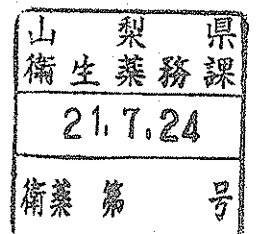 山梨県
衛生薬務課
21.7.24
衛薬第　　号